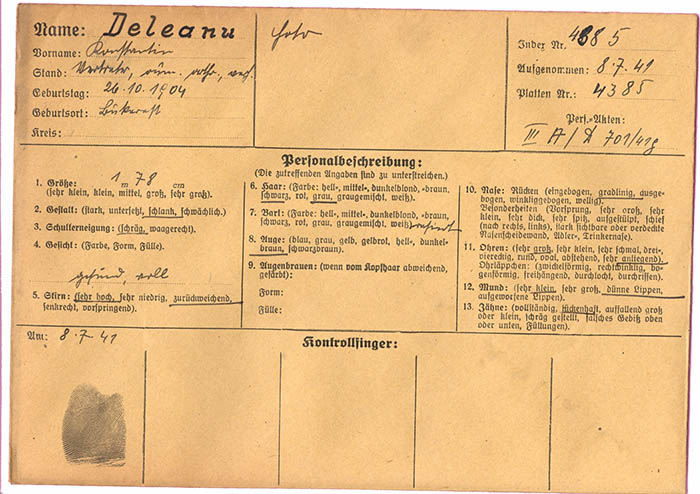 Name: Deleanu
Vorname: Konstantin
Stand: Vertreter, rum.
Geburtstag: 26.10.1904
Geburtsort: Bukarest
Kreis:
Foto
Index Nr. 4385
Aufgenommen: 8.7.41
Platten Nr.: 4385
Pers.-Akten:
III A/D 701/41g
Personalbeschreibung:
(Die zutreffenden Angaben sind zu unterstreichen.)
1. Größe: 1 m 78 cm
(sehr klein, klein, mittel, groß, sehr groß).
2. Gestalt: (stark, untersetzt, schlank, schwächlich.)
3. Schulterneigung: (schräg, waagerecht).
4. Gesicht: (Farbe, Form, Fülle).
gesund, voll
5. Stirn: (sehr hoch, sehr niedrig, zurückweichend,
senkrecht, vorspringend).
6. Haar: (Farbe: hell-, mittel-, dunkelblond, -braun,
schwarz, rot, grau, graugemischt, weiß).
7. Bart: (Farbe: hell-, mittel-, dunkelblond, -braun,
schwarz, rot, grau, graugemischt, weiß) rasiert
8. Auge: (blau, grau, gelb, gelbrot, hell-, dunkel-
braun, schwarzbraun).
9. Augenbrauen: (wenn vom Kopfhaar abweichend,
gefärbt):
Form:
Fülle:
10. Nase: Rücken (eingebogen, gradlinig, ausge-
bogen, winkliggebogen, wellig).
Besonderheiten (Vorsprung, sehr groß, sehr
klein, sehr dick, sehr spitz, aufgestülpt, schief
(nach rechts, links), stark sichtbare oder verdeckte
Nasenscheidewand, Adler-, Trinkernase).
11. Ohren: (sehr groß, klein, sehr schmal, drei-,
viereckig, rund, oval, abstehend, sehr anliegend).
Ohrläppchen: (zwickelförmig, rechtwinklig, bo-
genförmig, freihängend, durchlocht, durchrissen).
12. Mund: (sehr klein, sehr groß, dünne Lippen,
aufgeworfene Lippen).
13. Zähne: (vollständig, lückenhaft, auffallend groß
oder klein, schräg gestellt, falsches Gebiß oben
oder unten, Füllungen).
Am: 8.7.41
Kontrollfinger: